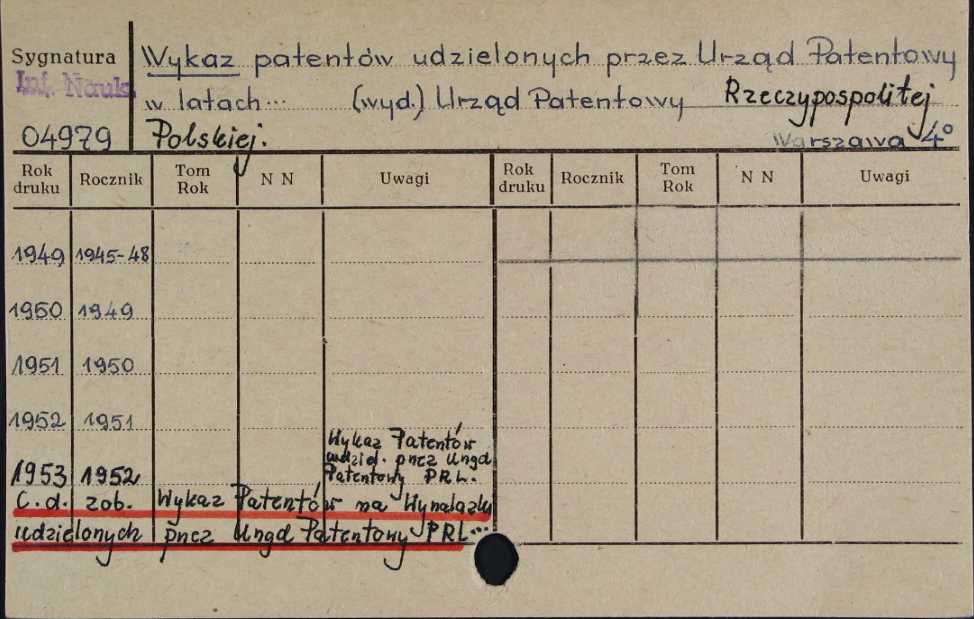 Sygnatura Wykaz patentów udzielonych przez Urząd Patentowy
Inf. Nauk. w latach... (wyd.) Urząd Patentowy Rzeczypospolitej
04979 Polskiej. Warszawa 4°
Rok druku Rocznik Tom Rok N N Uwagi Rok druku Rocznik Tom Rok N N Uwagi
1949 1945-48
1950 1949
1951 1950
1952 1951
Wykaz Patentów
udziel. przez Urząd
1953 1952 Patentowy PRL.
C.d. zob. Wykaz Patentów na Wynalazki
udzielonych przez Urząd Patentowy PRL...